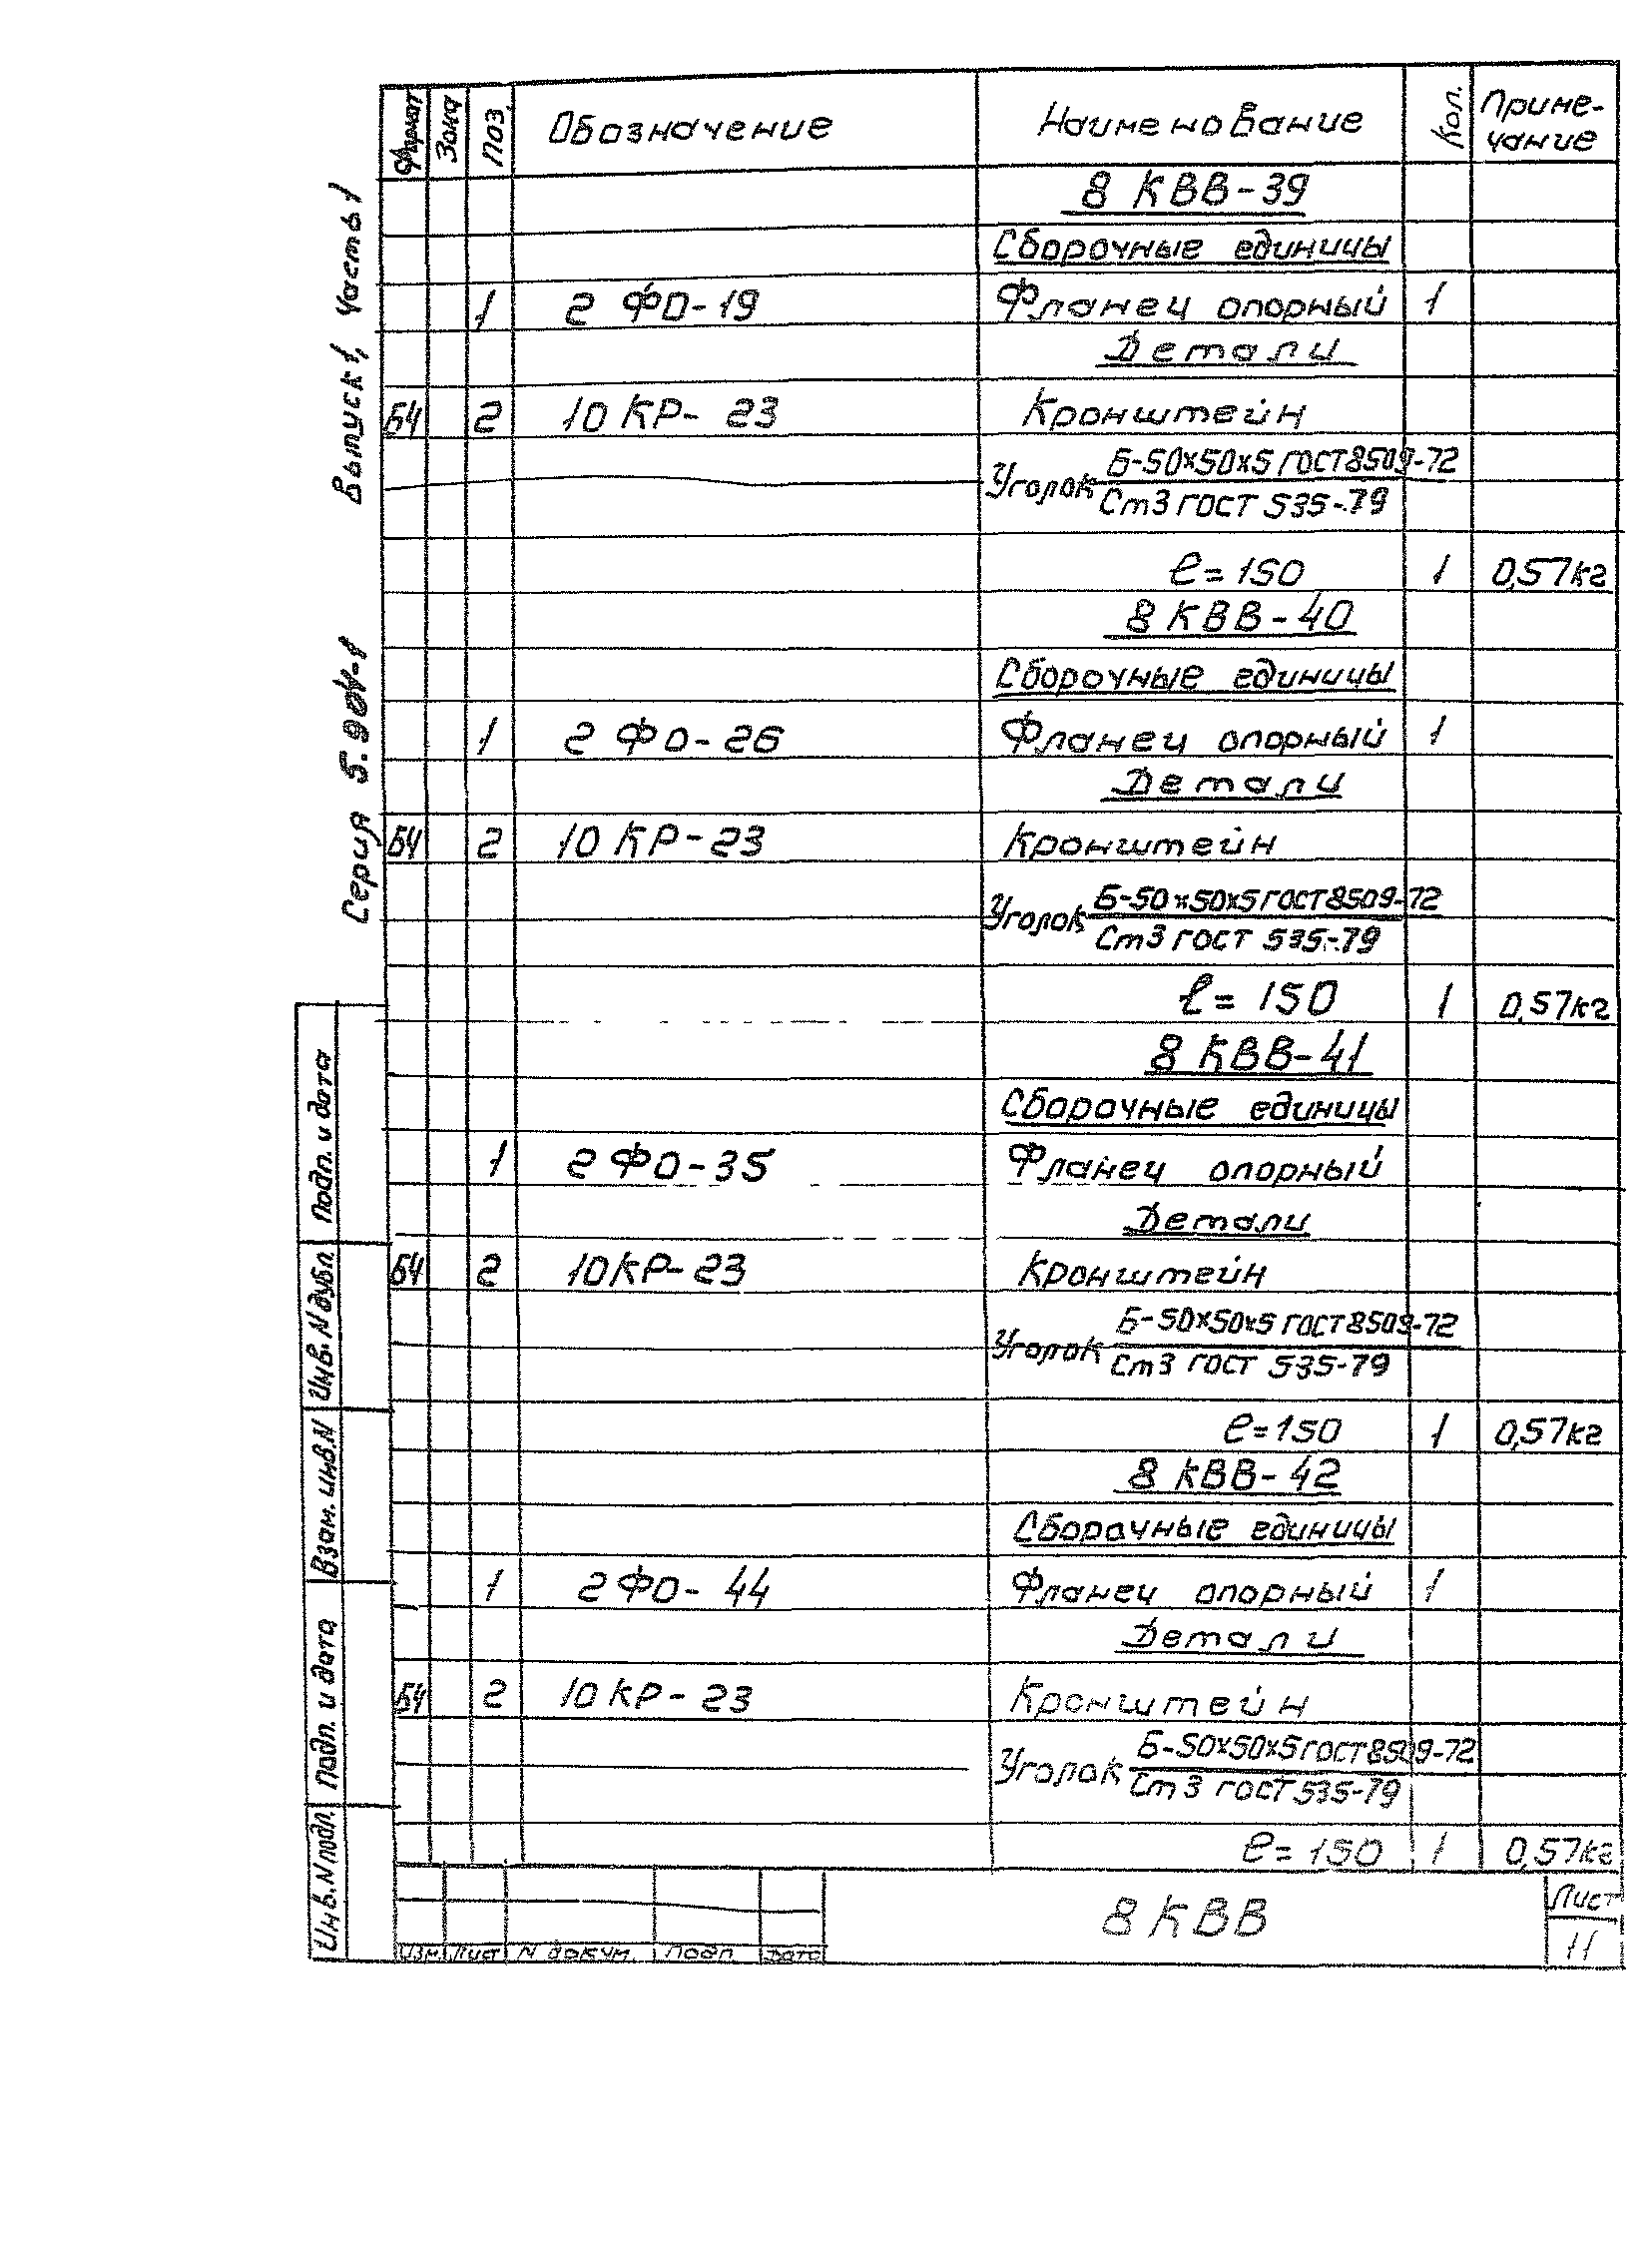 Формат Зона Поз. Обозначение Наименование Кол. Приме-
чание
8 КВВ-39
Сборочные единицы
1 2 ФО-19 Фланец опорный 1
Детали
БЧ 2 10 КР-23 Кронштейн
Уголок Б-50х50х5 ГОСТ 8509-72
Ст3 ГОСТ 535-79
ℓ=150 1 0,57кг
8 КВВ-40
Сборочные единицы
1 2 ФО-26 Фланец опорный 1
Детали
БЧ 2 10 КР-23 Кронштейн
Уголок Б-50х50х5 ГОСТ 8509-72
Ст3 ГОСТ 535-79
ℓ=150 1 0,57кг
8 КВВ-41
Сборочные единицы
1 2 ФО-35 Фланец опорный
Детали
БЧ 2 10КР-23 Кронштейн
Уголок Б-50х50х5 ГОСТ 8509-72
Ст3 ГОСТ 535-79
ℓ=150 1 0,57кг
8 КВВ-42
Сборочные единицы
1 2 ФО-44 Фланец опорный 1
Детали
БЧ 2 10 КР-23 Кронштейн
Уголок Б-50х50х5 ГОСТ 8509-72
Ст3 ГОСТ 535-79
ℓ=150 1 0,57кг
Изм. Лист N докум. Подп. Дата
8 КВВ
Лист
11
Серия 5.904-1 Выпуск 1, часть 1
Инв. N подл. Подп. и дата Взам. инв. N Инв. N дубл. Подп. и дата